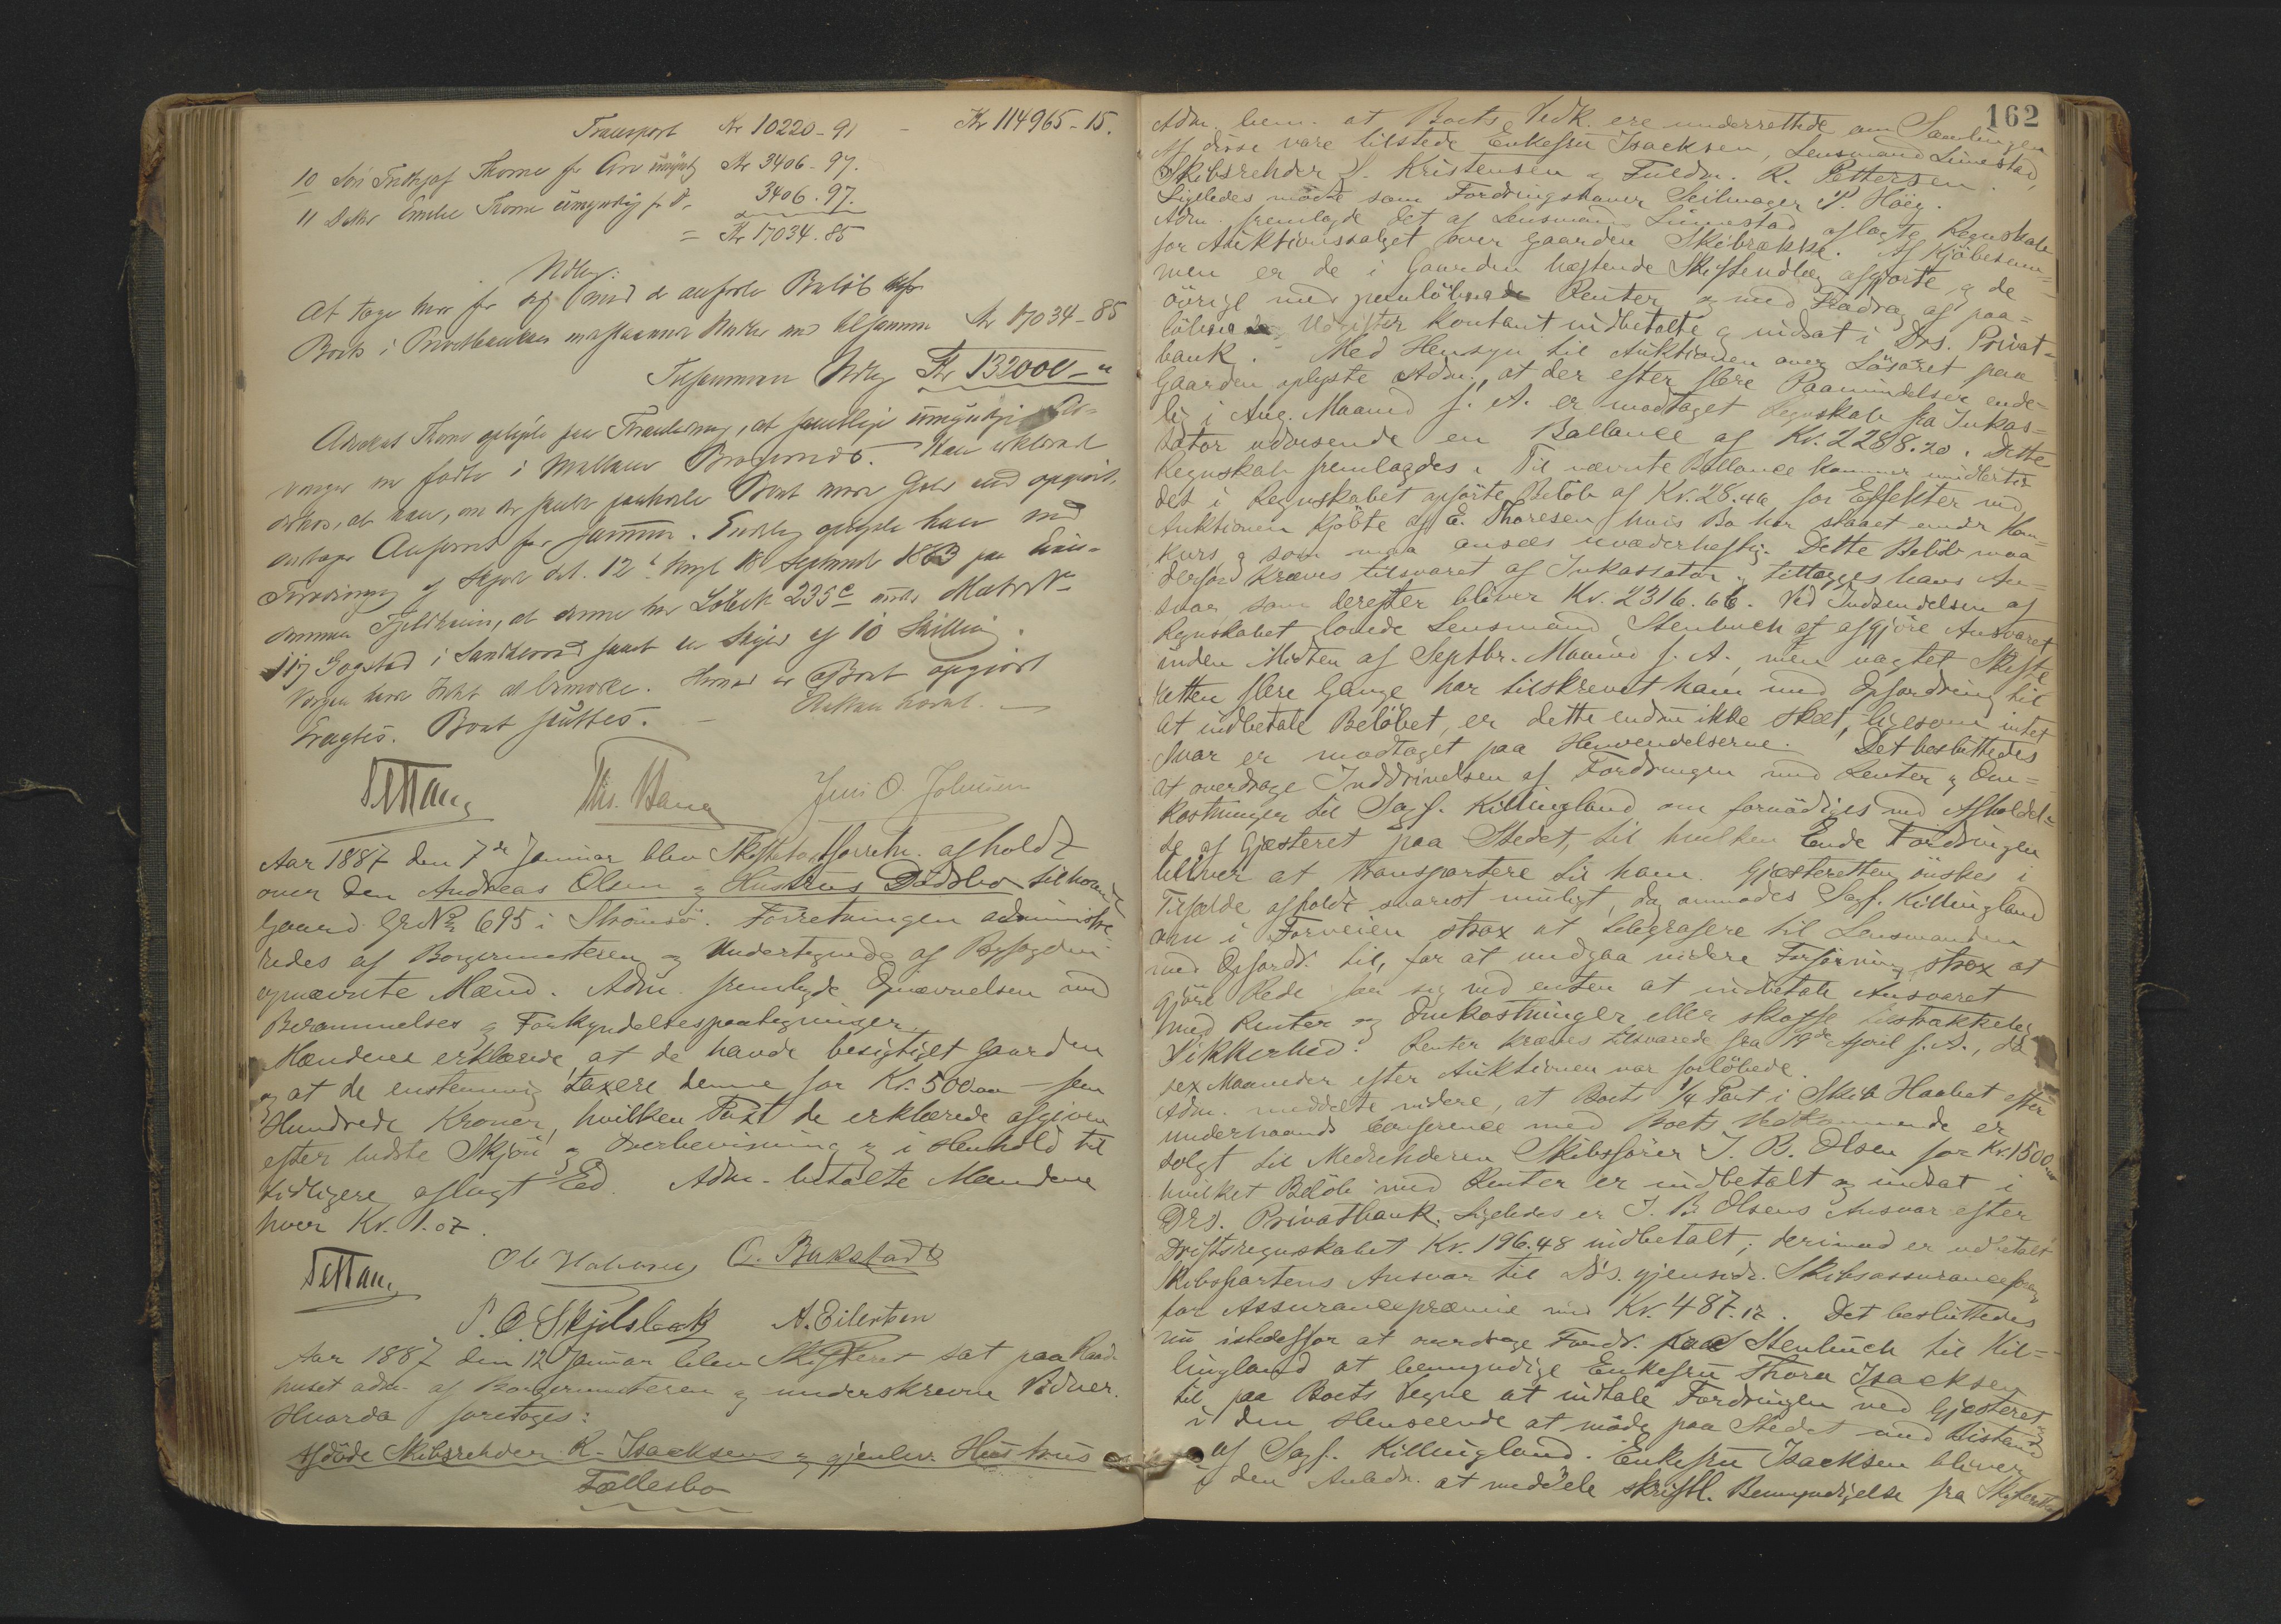 Transport Kr 10220-91 - Kr 114965-15.
10 Søn Fridtjof Thorne for Arv umyndig Kr 3406-97.
11 Datter Emilie Thorne umyndig for D° 3406.97.
= Kr 17034.85
Udlæg:
At tage hver for sig med de anførte Beløb
Boets i Privatbanken indestaaende Midler med tilsammen Kr 17034-85
Tilsammen Udlæg Kr 132000-"
Advokat Thorne oplyste paa Foranledning, at samtlige umyndige Ar-
vinger ere fødte i Bragernes. Han erklærede
derhos, at han, om der skulde paahvile Boet mere Gjeld end opgivet,
overtager Ansvaret for samme. Endelig oplyste han med
Fremvisning af Skjøde dat. 12te tingl. 18 September 1863 paa Eien-
dommen Fjeldheim, at denne har Løbe N° 235c under Matr. N°
117 Gogstad i Sandeherred samt en Skyld af 10 Skilling.
Vergen havde Intet at bemærke. Hermed er Boet opgjort
Eragtes. Boet sluttes. - Retten hævet.
Ths. Bang Jens O. Johnsen
Aar 1887 den 7de Januar blev Skiftetaxtforretn. afholdt
over den Andreas Olsen & Hustrus Dødsbo tilhørende
Gaard Gr N° 695 i Strømsø. Forretningen administre-
redes af Borgermesteren og Undertegnede af Byfogden
opnævnte Mænd. Adm. fremlagde Opnævnelsen med
Berammelses & Forkyndelsespaategninger.
Mændene erklærede at de havde besigtiget Gaarden
og at de enstemmig taxere denne for Kr. 500.00 fem
Hundrede Kroner, hvilken Taxt de erklærede afgiven
efter bedste Skjøn & Overbevisning & i Henhold til
tidligere aflagt Ed. Adm. betalte Mændene
hver Kr. 1.07.
O. Bakstad
P. O. Skjelsbæk A. Eilertsen
Aar 1887 den 12 Januar blev Skifteret sat paa Raad-
huset adm. af Borgermesteren & underskrevne Vidner.
Hvorda foretoges:
Afdøde Skibsrehder R. Isacksens & gjenlev. Hustrus
Fællesbo
162
Adm. bem. at Boets Vedk. ere underrettede om Samlingen
Af disse vare tilstede Enkefru Isacksen, Lensmand Linnestad,
Skibsrehder S. Kristensen & Fuldm. R. Pettersen.
Ligeledes mødte som Fordringshaver Seilmager P. Høeg.
Adm. fremlagde det af Lensmand Linnestad aflagte Regnskab
for Auktionssalget over Gaarden Skibrække. Af Kjøbesum-
men er de i Gaarden hæftende Skifteudlæg afgjorte, & de
øvrige med paaløbende Renter & med Fradrag af paa-
løbne Udgifter kontant indbetalte & indsat i Drs. Privat-
bank. Med Hensyn til Auktionen over Løsøret paa
Gaarden oplyste Adm., at der efter flere Paamindelser ende-
lig i Aug. Maaned f. A. er modtaget Regnskab fra Inkas-
sator udvisende en Ballance af Kr. 2288.20. Dette
Regnskab fremlagdes. Til nævnte Ballance kommer imidlertid
det i Regnskabet anførte Beløb af Kr. 28.46 for Effekter ved
Auktionen kjøbte af E. Thoresen, hvis Bo har staaet under Kon-
kurs & som maa ansees uvederheftig. Dette Beløb maa
derfor kræves tilsvaret af Inkassator & tillægges hans An-
svar som derefter bliver Kr. 2316.66. Ved Indsendelsen af
Regnskabet lovede Lensmand Stenbuch at afgjøre Ansvaret
inden Midten af Septbr. Maaned f. A., men uagtet Skifte-
retten flere Gange har tilskrevet ham med Opfordring til
at indbetale Beløbet, er dette endnu ikke skeet, ligesom intet
Svar er modtaget paa Henvendelserne. Det besluttedes
at overdrage Inddrivelsen af Fordringen med Renter & Om-
kostninger til Sagf. Killingland om fornødiges ved Afholdel-
se af Gjæsteret paa Stedet, til hvilken Ende Fordringen
bliver at transportere til ham. Gjæsteretten ønskes i
Tilfælde afholdt snarest muligt, og anmodes Sagf. Killingland
om i Forveien strax at telegrafere til Lensmanden
med Opfordr. til, for at undgaa videre Forføining, strax at
gjøre Rede for sig ved enten at indbetale Ansvaret
med Renter og Omkostninger eller skaffe tilstrækkelig
Sikkerhed. Renter kræves tilsvarede fra 19de April f. A., da
sex Maaneder efter Auktionen var forløbede.
Adm. meddelte videre, at Boets 1/4 Part i Skib Haabet efter
underhaands Conference med Boets Vedkommende er
solgt til Medrehderen Skibsfører J. B. Olsen for Kr. 1500,00
hvilket Beløb med Renter er indbetalt & indsat i
Drs. Privatbank. Ligeledes er J. B. Olsens Ansvar efter
Driftsregnskabet Kr. 196.48 indbetalt; derimod er udbetalt
Skibspartens Ansvar til D's. gjensid. Skibsassuranceforeng
for Assurancepræmie med Kr. 487.12. Det besluttedes
nu istedetfor at overdrage Fordr. paa Stenbuch til Kil-
lingland at bemyndige Enkefru Thora Isacksen
til paa Boets Vegne at indtale Fordringen ved Gjæsteret &
i den Henseende at møde paa Stedet med Bistand
af Sagf. Killingland. Enkefru Isacksen bliver
i den Anledn. at meddele skriftl. Bemyndigelse fra Skifteretten